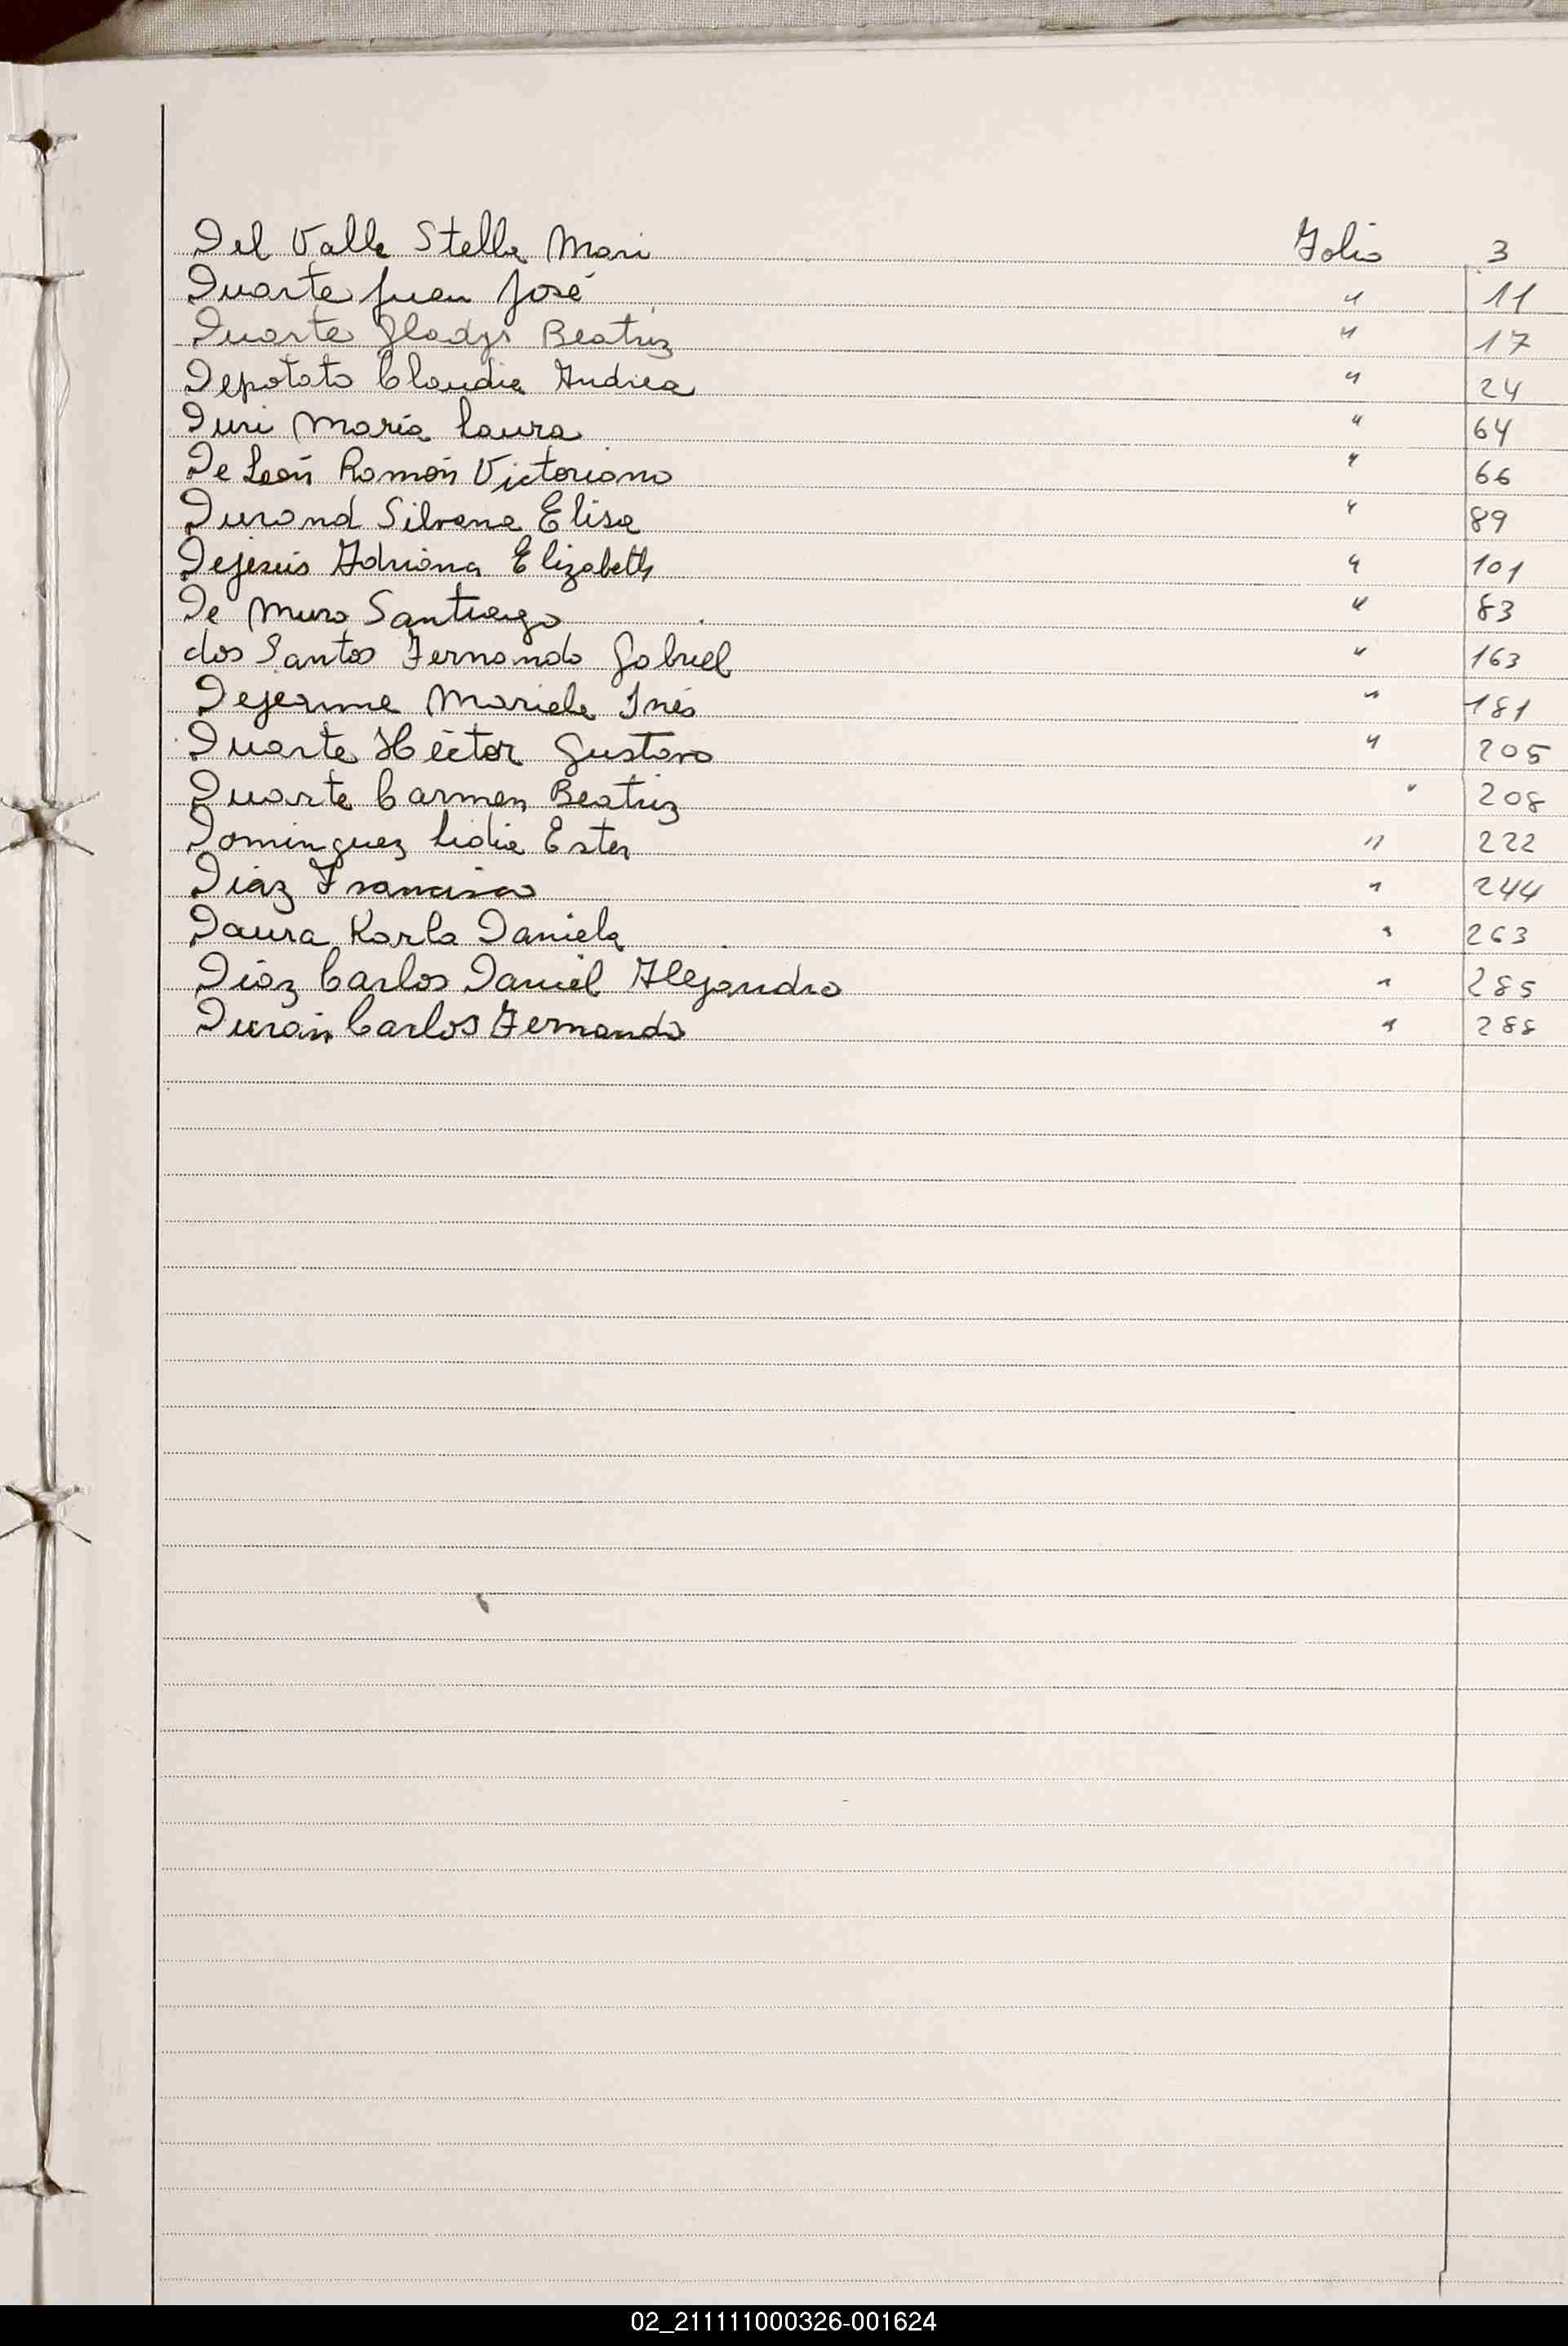 Del Valle Stella Mari Folio 3
Duarte Juan José " 11
Duarte Gladys Beatriz " 17
Depotato Claudia Andrea " 24
Duri María Laura " 64
De León Ramón Victoriano " 66
Durand Silvana Elisa " 89
Dejesús Adriana Elizabeth " 101
De Muro Santiago " 83
dos Santos Fernando Gabriel " 163
Dejeanne Mariela Inés " 181
Duarte Héctor Gustavo " 205
Duarte Carmen Beatriz " 208
Dominguez Lidia Ester " 222
Diáz Francisco " 244
Daura Karla Daniela " 263
Diáz Carlos Daniel Alejandro " 285
Durán Carlos Fernando " 288
02_211111000326-001624